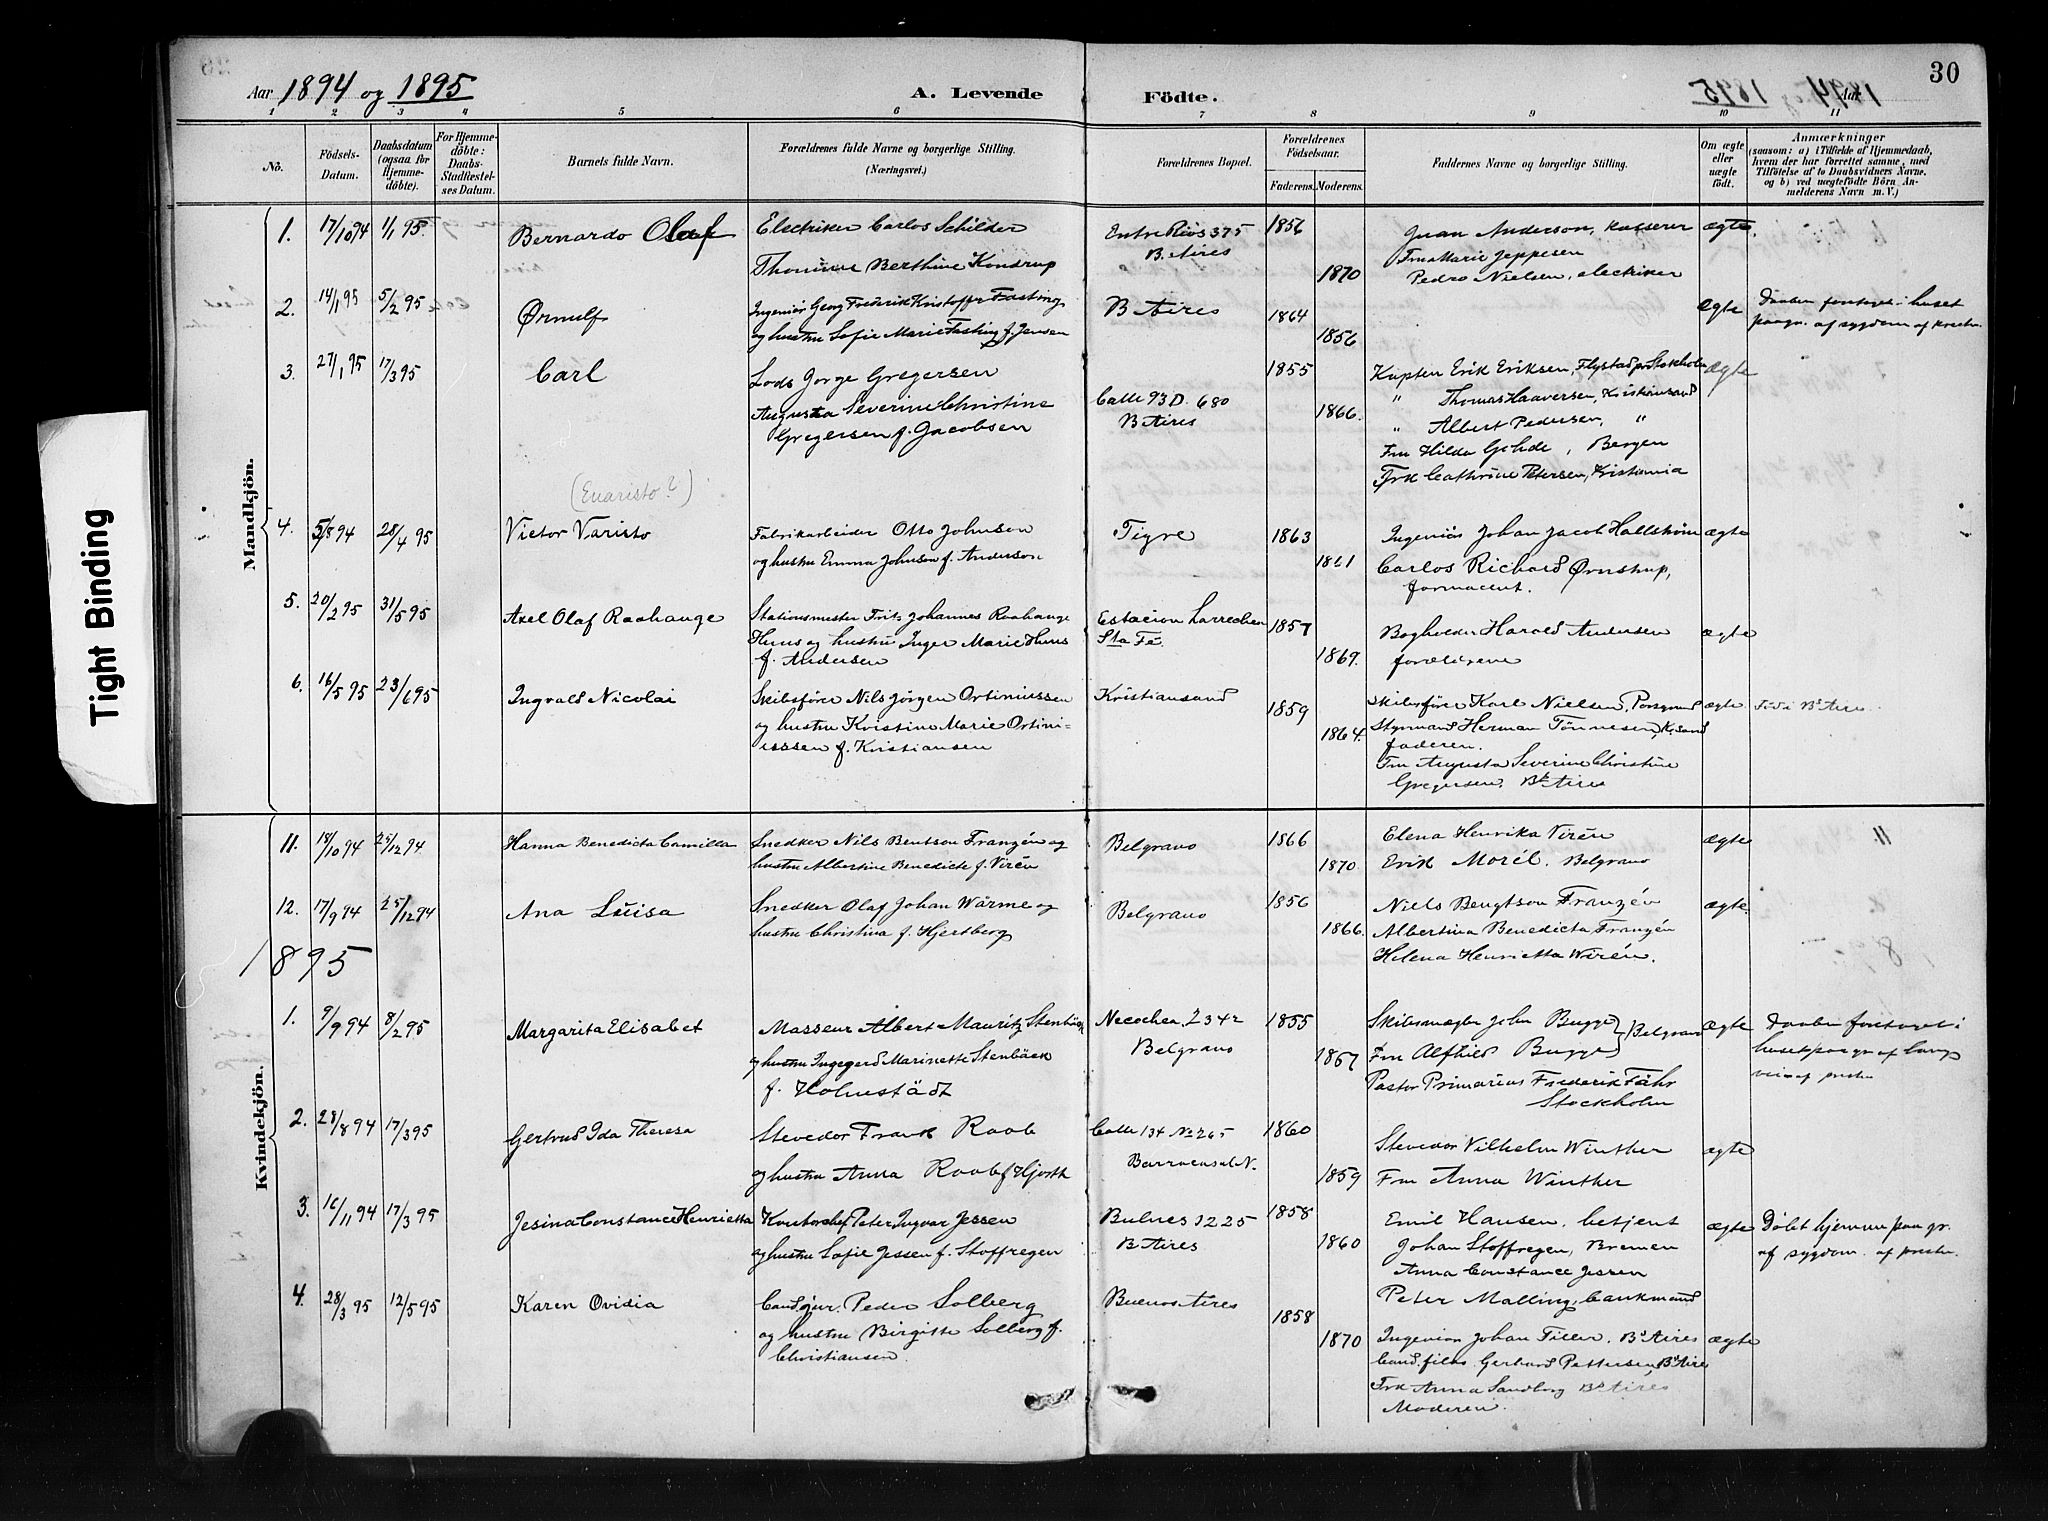 Tight Binding
30
Aar 1894 og 1895
A. Levende Födte.
1 2 3 4 5 6 7 8 9 10 11
No.
Födsels-Datum.
Daabsdatum (ogsaa for Hjemmedöbte).
For Hjemmedöbte: Daabs-Stadfæstelses Datum.
Barnets fulde Navn.
Forældrenes fulde Navne og borgerlige Stilling. (Næringsvei.)
Forældrenes Bopæl.
Forældrenes Födselsaar.
Faderens. Moderens.
Faddernes Navne og borgerlige Stilling.
Om ægte eller uægte födt.
Anmærkninger
(saasom: a) i Tilfælde af Hjemmedaab, hvem der har forrettet samme, med Tilföielse af to Daabsvidners Navne, og b) ved uægtefödte Börn Anmelderens Navn m. V.)
Mandkjön.
1. 17/10 94 1/1 95. Bernardo Olaf Electriker Carlos Schilder Entre Rios 375 1856 Juan Anderson, kasserer ægte.
B. Aires Fru Marie Jeppesen
Thomine Berthine Kondrup 1870 Pedro Nielsen, electriker
2. 14/1 95 5/2 95 Ørnulf Ingeniör Georg Frederik Kristoffer Fasting B Aires 1864 Ægte Daaben foretaget i huset
og hustru Sofie Marie Fasting f. Jensen 1856 paa gr. af sygdom af presten.
3. 27/1 95 17/3 95 Carl Lods Jorge Gregersen 1855 Kapten Erik Eriksen, Flystad pr Stokholm Ægte
Calle 93 D. 680 " Thomas Haaversen, Kristiansand
Augusta Severine Christine B Aires 1866. " Albert Pedersen, "
Gregersen f. Jacobsen Fru Hilda Gohde, Bergen
Frk Cathrine Petersen, Kristiania
(Evaristo?)
4. 5/8 94 28/4 95 Victor Varisto Fabrikarbeider Otto Johnson Tigre 1863 Ingeniör Johan Jacob Hallström ægte
og hustru Emma Johnson f. Anderson 1861 Carlos Richard Ørnstrup,
farmaceut.
5. 20/2 95 31/5 95 Axel Olaf Raahauge Stationsmester Frits Johannes Raahauge Estacion Larrechea 1857 Bogholder Harald Andersen ægte
Huus og hustru Inger Marie Huus Sta Fé. 1869. forældrene
f. Andersen
6. 16/5 95 23/6 95 Ingvald Nicolai Skibsförer Nils Jörgen Ortiniussen Kristiansand 1859 Skibsförer Karl Nielsen, Porsgrund ægte Föd i Bs Aires
og hustru Kristine Marie Ortini- 1864. Styrmand Herman Tönnesen, K.sand
usssen f. Kristiansen faderen.
Fru Augusta Severine Christine
Gregersen, Bs Aires
Kvindekjön.
11. 18/10 94 25/12 94 Hanna Benedicta Camilla Snedker Nils Bentson Franzén og Belgrano 1866 Elena Henrika Virén ægte
hustru Albertine Benedicte f. Virén 1870. Erik Morél. Belgrano
12. 17/9 94 25/12 94 Ana Luisa Snedker Olaf Johan Wärme og Belgrano 1856 Niels Bengtson Franzén ægte.
hustru Christina f. Hjertberg 1866. Albertina Benedicta Franzén
Helena Henrietta Wirén.
1895
1. 9/9 94 8/2 95 Margarita Elisabet Masseur Albert Mauritz Stenbäck Necochea, 2342 1855 Skibsmægler John Bugge Belgrano ægte Daaben foretaget i
og hustru Ingegerd Marinette Stenbäck Belgrano 1867 Fru Alfhild Bugge huset paa gr af lang
f. Holmstädt Pastor Primarius Frederik Fähr vei af presten
Stockholm
2. 28/8 94 17/3 95 Gertrud Ida Theresa Stevedor Frank Raab Calle 134 No 265 1860 Stevedor Vilhelm Winther ægte
og hustru Anna Raab f Hjorth Barracas al N. 1859 Fru Anna Winther
3. 16/11 94 17/3 95 Jesina Constance Henrietta Kontorchef Peter Ingvar Jessen Bulnes 1225 1858 Emil Hansen, betjent ægte Döbt hjemme paa gr.
og hustru Sofie Jessen f. Stoffregen B Aires 1860 Johan Stoffregen, Bremen af sygdom. af presten.
Anna Constance Jessen
4. 28/3 95 12/5 95 Karen Ovidia Cand jur. Peder Solberg Buenos Aires 1858 Peter Malling, bankmand
og hustru Birgitte Solberg f. 1870 Ingeniör Johan Tiller. Bs Aires ægte
Christiansen. Cand. filos. Gerhard Pettersen, Bs Aires
Frk Anna Sandberg Bs Aires
Moderen.